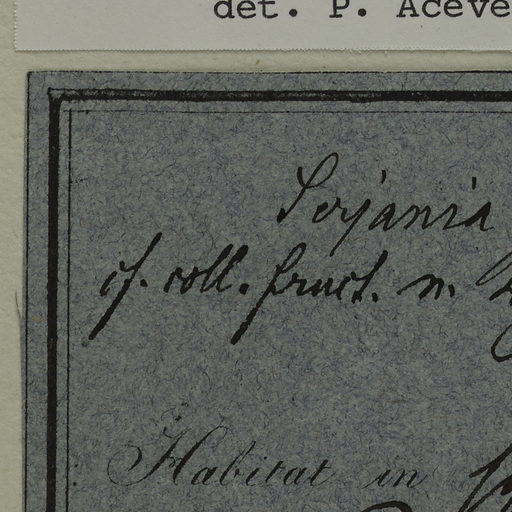 det. P. Aceve
Serjania
cf. coll. fruct. n.
Habitat in